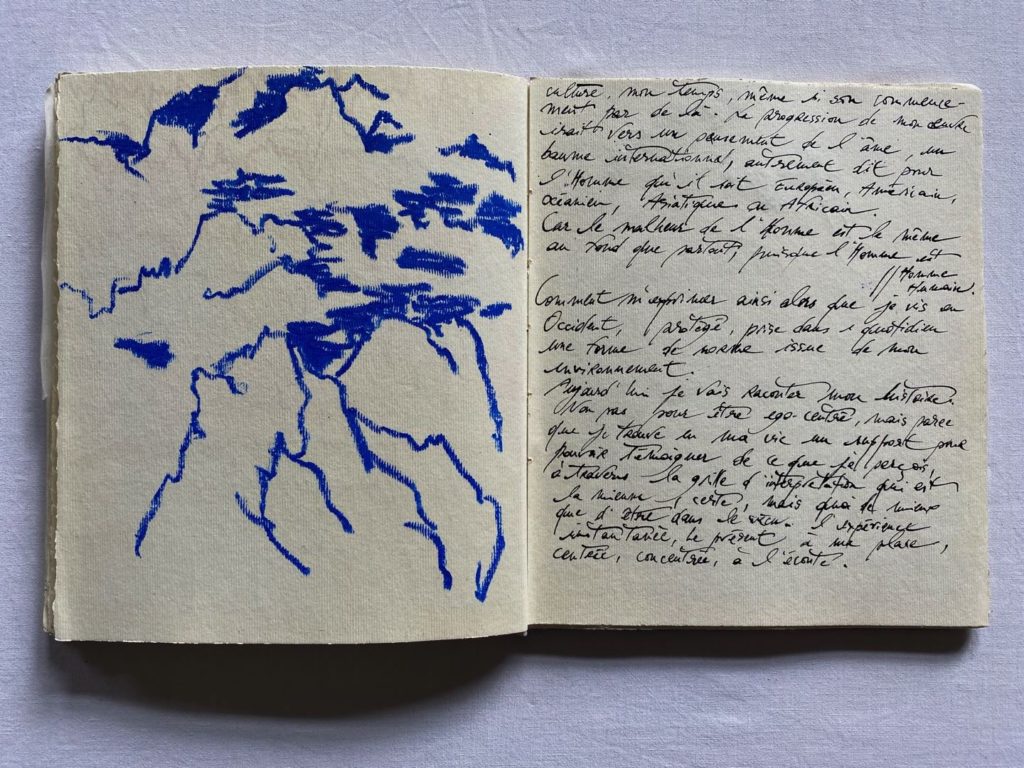 culture, mon temps, même si son commence-
ment par de là. La progression de mon œuvre
irait vers un pansement de l'âme, un
baume international, autrement dit pour
l'Homme qu'il soit Européen, Américain,
océanien, Asiatique ou Africain.
Car le malheur de l'Homme est le même
au fond que partout, puisque l'Homme est
Homme
Humain.
Comment m'exprimer ainsi alors que je vis en
Occident, protégé, prise dans quotidien
une forme de norme issue de mon
environnement.
Aujourd'hui je vais raconter mon histoire.
Non pas pour être ego-centré, mais parce
que je trouve en ma vie un support pour
pouvoir témoigner de ce que je perçois,
à travers la grille d'interprétation qui est
la mienne, certe, mais quoi de mieux
que d'être dans le l'expérience
instantanée, le présent à ma place,
centrée, concentrée, à l'écoute.